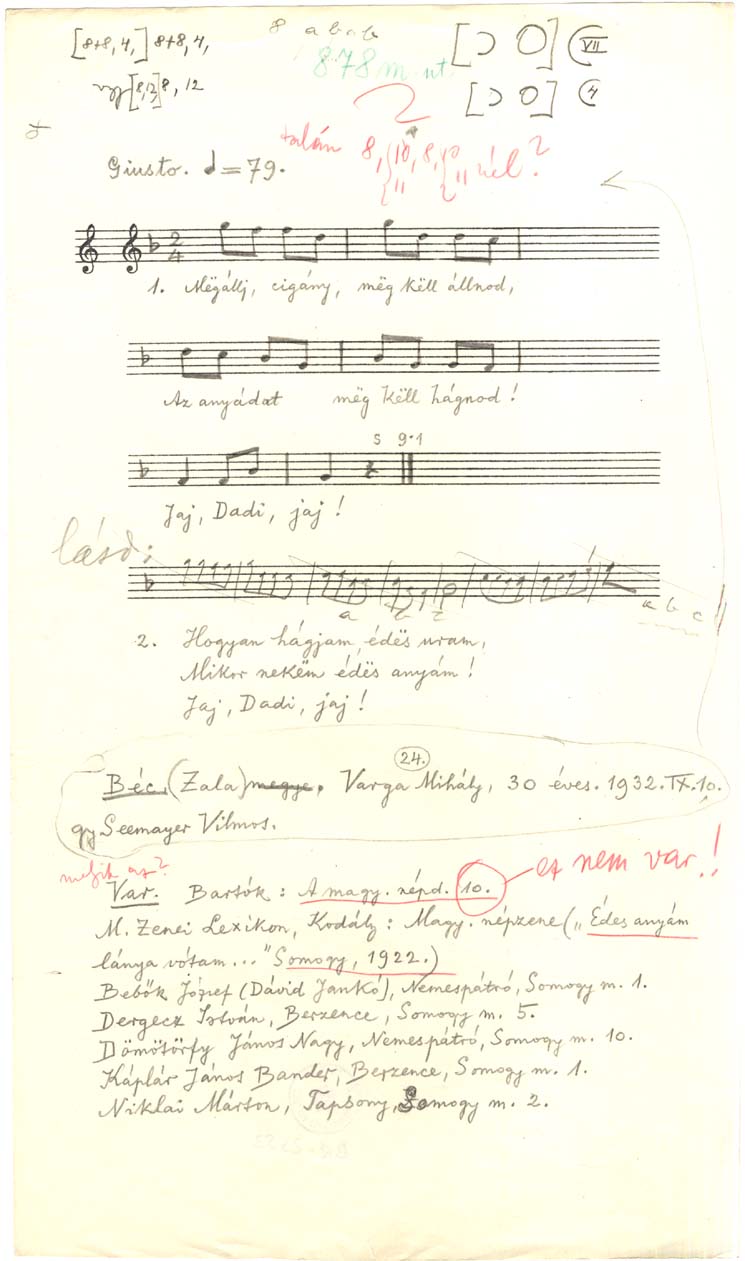 [8+8, 4,] 8+8, 4,
8 a b a b
VII
878 m. ut.
[8,12] 8, 12
4
talán 8, 10, 8, 10 nél?
11 11
Giusto. = 79.
2
4
1. Mëgállj, cigány, mëg këll állnod,
Az anyádat mëg këll hágnod!
S 9·1
Jaj, Dadi, jaj!
lásd:
a b c
2. Hogyan hágjam, édës uram,
Mikor nekëm édës anyám!
Jaj, Dadi, jaj!
24.
Béc, (Zala) megye. Varga Mihály, 30 éves. 1932. IX. 10.
gy Seemayer Vilmos.
melyik az?
ez nem var.!
Var. Bartók: A magy. népd. 10.
M. Zenei Lexikon, Kodály: Magy. népzene („Édes anyám
lánya vótam..." Somogy, 1922.)
Bebők József (Dávid Jankó), Nemespátró, Somogy m. 1.
Dergecz István, Berzence, Somogy m. 5.
Dömötörfy János Nagy, Nemespátró, Somogy m. 10.
Káplár János Bander, Berzence, Somogy m. 1.
Niklai Márton, Tapsony, Somogy m. 2.